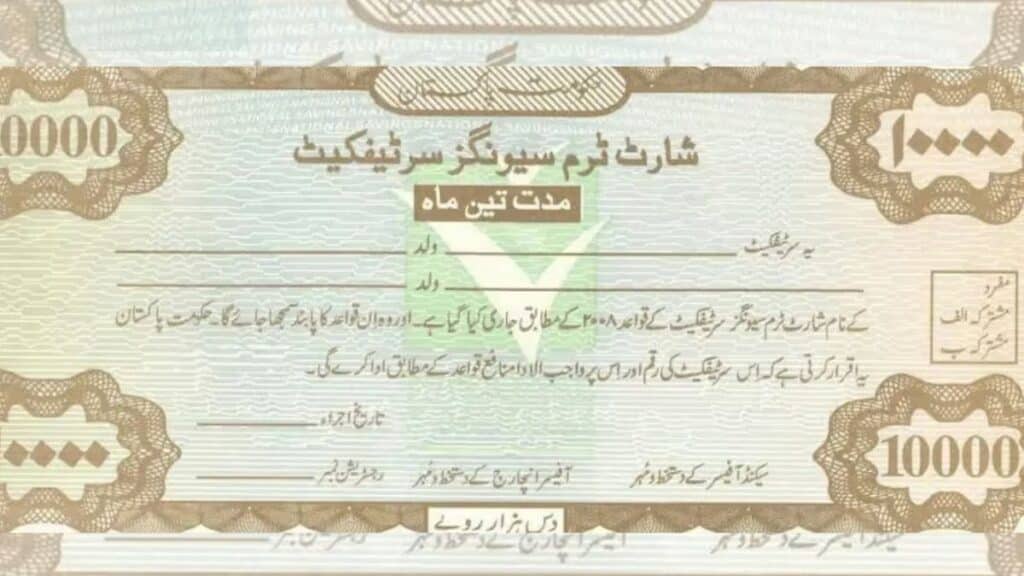 حکومت پاکستان
10000
۱۰۰۰۰
شارٹ ٹرم سیونگز سرٹیفکیٹ
مدت تین ماہ
یہ سرٹیفکیٹ ولد
ولد
کے نام شارٹ ٹرم سیونگز سرٹیفکیٹ کے قواعد ۲۰۰۸ کے مطابق جاری کیا گیا ہے۔ اور وہ ان قواعد کا پابند سمجھا جائے گا۔ حکومت پاکستان
یہ اقرار کرتی ہے کہ اس سرٹیفکیٹ کی رقم اور اس پر واجب الادا منافع قواعد کے مطابق ادا کرے گی۔
مفرد
مشترکہ الف
مشترکہ ب
تاریخ اجراء
10000
۰۰۰۰
سیکنڈ آفیسر کے دستخط و مُہر آفیسر انچارج کے دستخط و مُہر رجسٹریشن نمبر
دس ہزار روپے
سیکنڈ آفیسر کے دستخط و مُہر آفیسر انچارج کے دستخط و مُہر رجسٹریشن نمبر